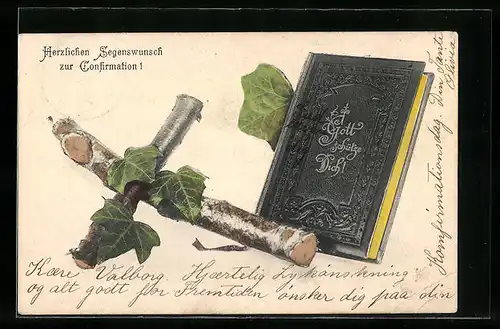 Herzlichen Segenswunsch
zur Confirmation!
Gott
schütze
Dich!
Kære Valborg Hjærtelig Lykønskning
og alt godt for Fremtiden ønsker dig paa din
Konfirmationsdag. Din Tante